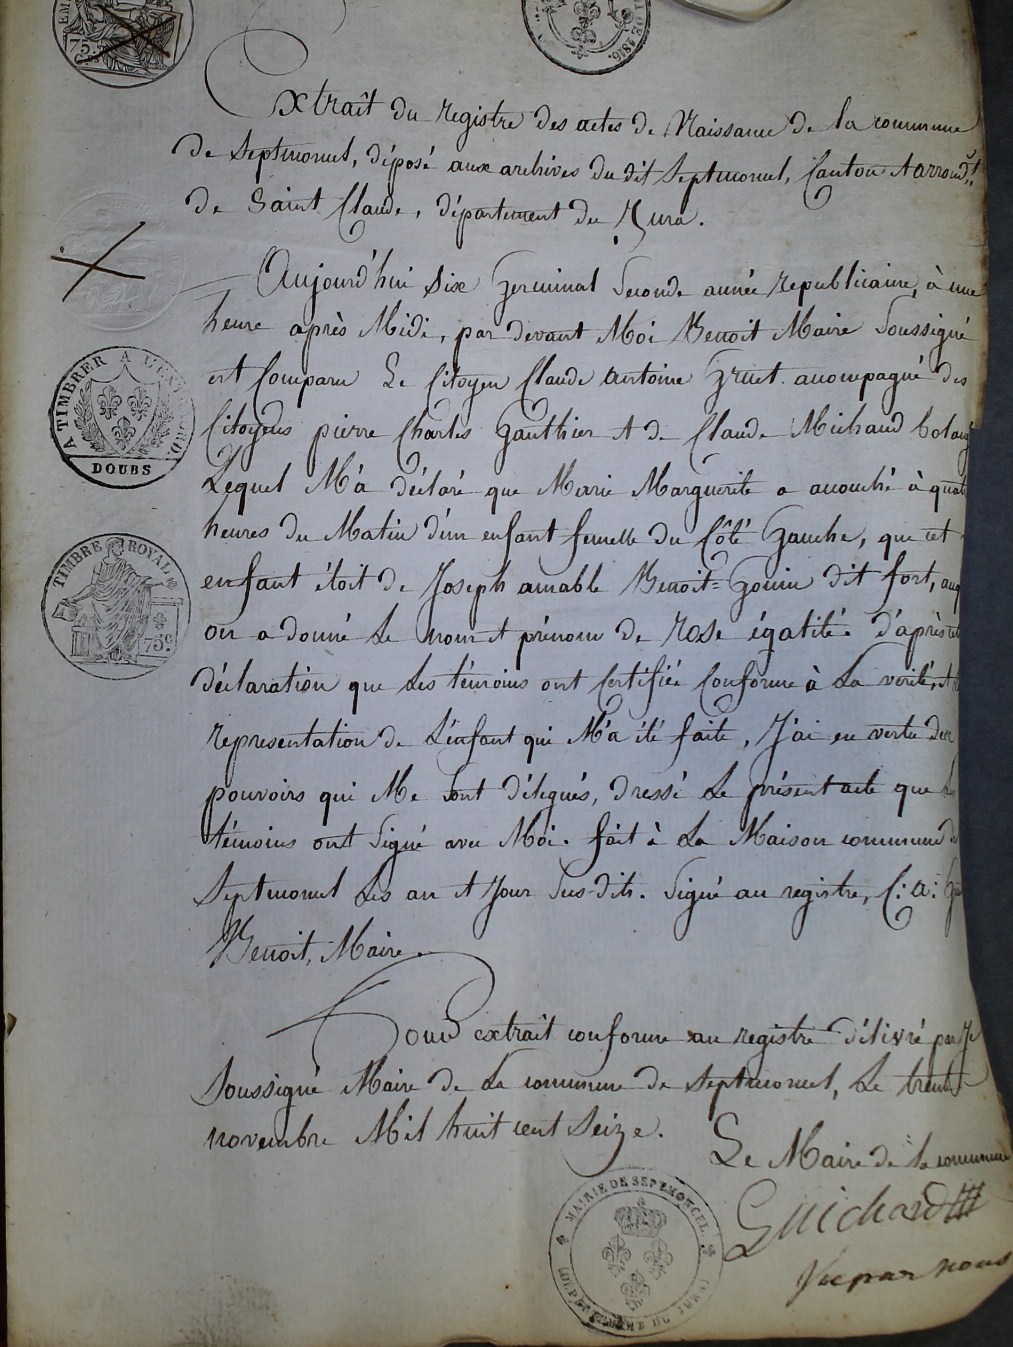 75.
DE 1816.
Extraît du registre des actes de Naissance de la commune
de Septmoncel, déposé aux archives du dit Septmoncel, Canton et arrondt.
de Saint Claude, département du Jura.
Aujourd'hui six germinal Seconde année républicaine, à une
heure après Midi, par devant Moi Benoit Maire Soussigné
est Comparu Le Citoyen Claude antoine Gruet accompagné des
Citoyens pierre Charles Gauthier et de Claude Michaud
Lequel M'a déclaré que Marie Marguerite a accouché à
heures du Matin d'un enfant femelle du Côté Gauche, que cet
enfant étoit de Joseph amable Benoit=Gonin dit fort,
on a donné Le nom et prénom de rose égalité. d'après
déclaration que Les témoins ont Certifiée Conforme à La vérité, et
représentation de L'enfant qui M'a été faite, J'ai en vertu
pouvoirs qui Me sont délegués, dressé Le présent acte que
témoins ont Signé avec Moi. fait à La Maison commune
Septmoncel Les an et Jour Sus-dits. Signé au registre, C: a:
Benoit, Maire.
Pour extrait conforme au registre délivré par
Soussigné Maire de La commune de Septmoncel, Le trente
novembre Mil huit cent Seize.
Le Maire de la commune
Guichard
Vu par nous
A TIMBRER A L'EXTRAORD.
DOUBS
TIMBRE ROYAL
75c.
MAIRIE DE SEPTMONCEL
DÉPARTEMENT DU JURA